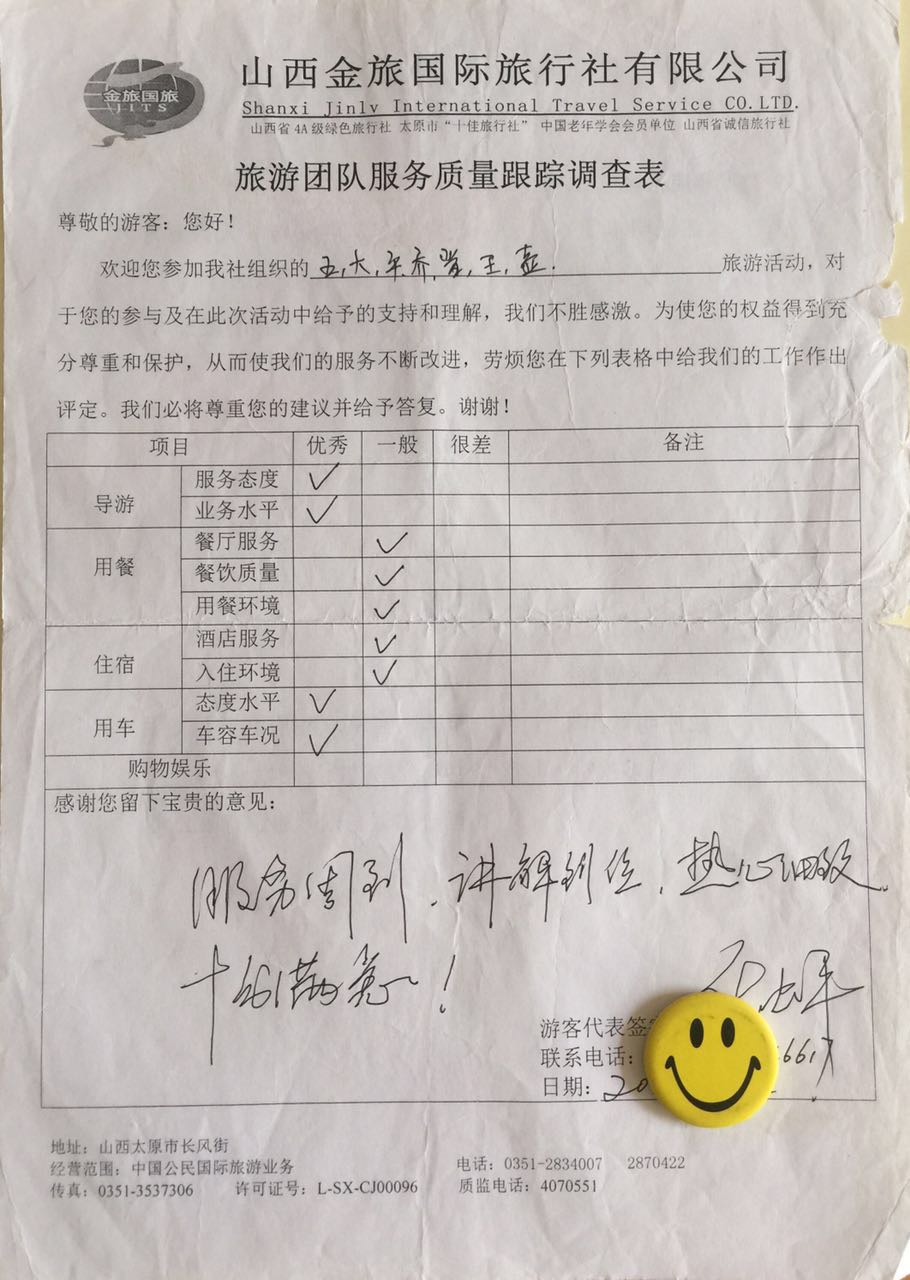 金旅国旅
JITS
山西金旅国际旅行社有限公司
Shanxi Jinlv International Travel Service CO.LTD.
山西省4A级绿色旅行社 太原市“十佳旅行社” 中国老年学会会员单位 山西省诚信旅行社
旅游团队服务质量跟踪调查表
尊敬的游客：您好！
欢迎您参加我社组织的五,大,平,乔,常,王,壶.旅游活动，对
于您的参与及在此次活动中给予的支持和理解，我们不胜感激。为使您的权益得到充
分尊重和保护，从而使我们的服务不断改进，劳烦您在下列表格中给我们的工作作出
评定。我们必将尊重您的建议并给予答复。谢谢！
项目 优秀 一般 很差 备注
导游 服务态度 ✓
业务水平 ✓
用餐 餐厅服务 ✓
餐饮质量 ✓
用餐环境 ✓
住宿 酒店服务 ✓
入住环境 ✓
用车 态度水平 ✓
车容车况 ✓
购物娱乐
感谢您留下宝贵的意见：
服务周到，讲解到位，热心细致
十分满意！
游客代表签
联系电话： 6617
日期：20
地址：山西太原市长风街
经营范围：中国公民国际旅游业务 电话：0351-2834007 2870422
传真：0351-3537306 许可证号：L-SX-CJ00096 质监电话：4070551